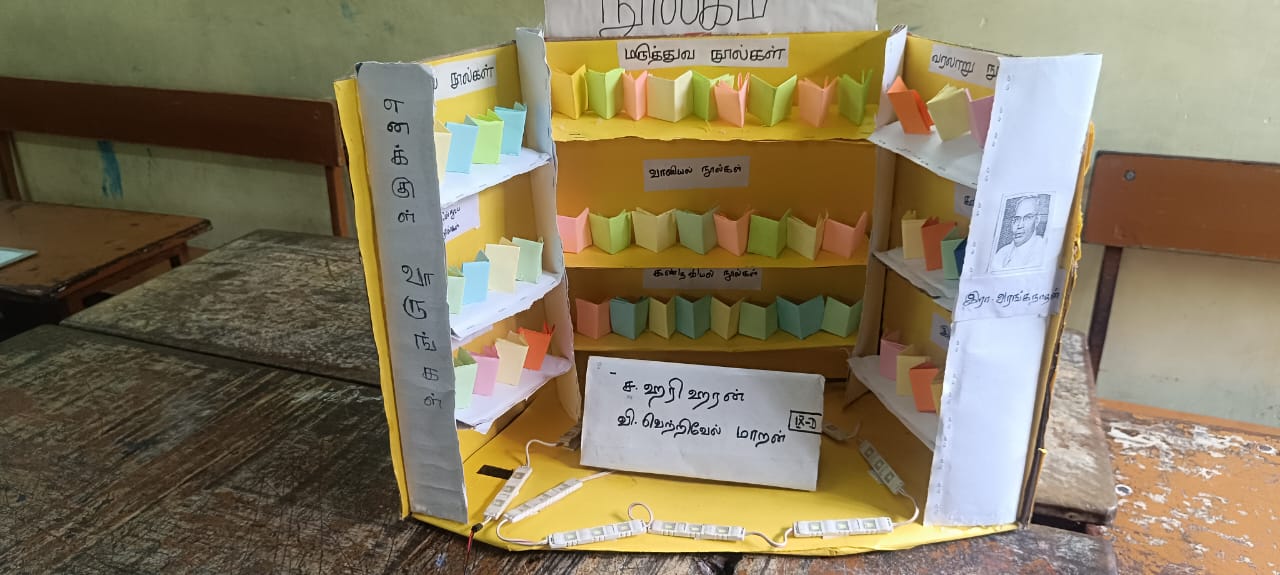 நூலகம்
மருத்துவ நூல்கள்
நூல்கள்
வரலாறு
எனக்குள் வாருங்கள்
வானியல் நூல்கள்
கணிதவியல் நூல்கள்
இரா. அரங்கநாதன்
ச. ஹரி ஹரன்
வி. வெற்றிவேல் மாறன்
IX-D